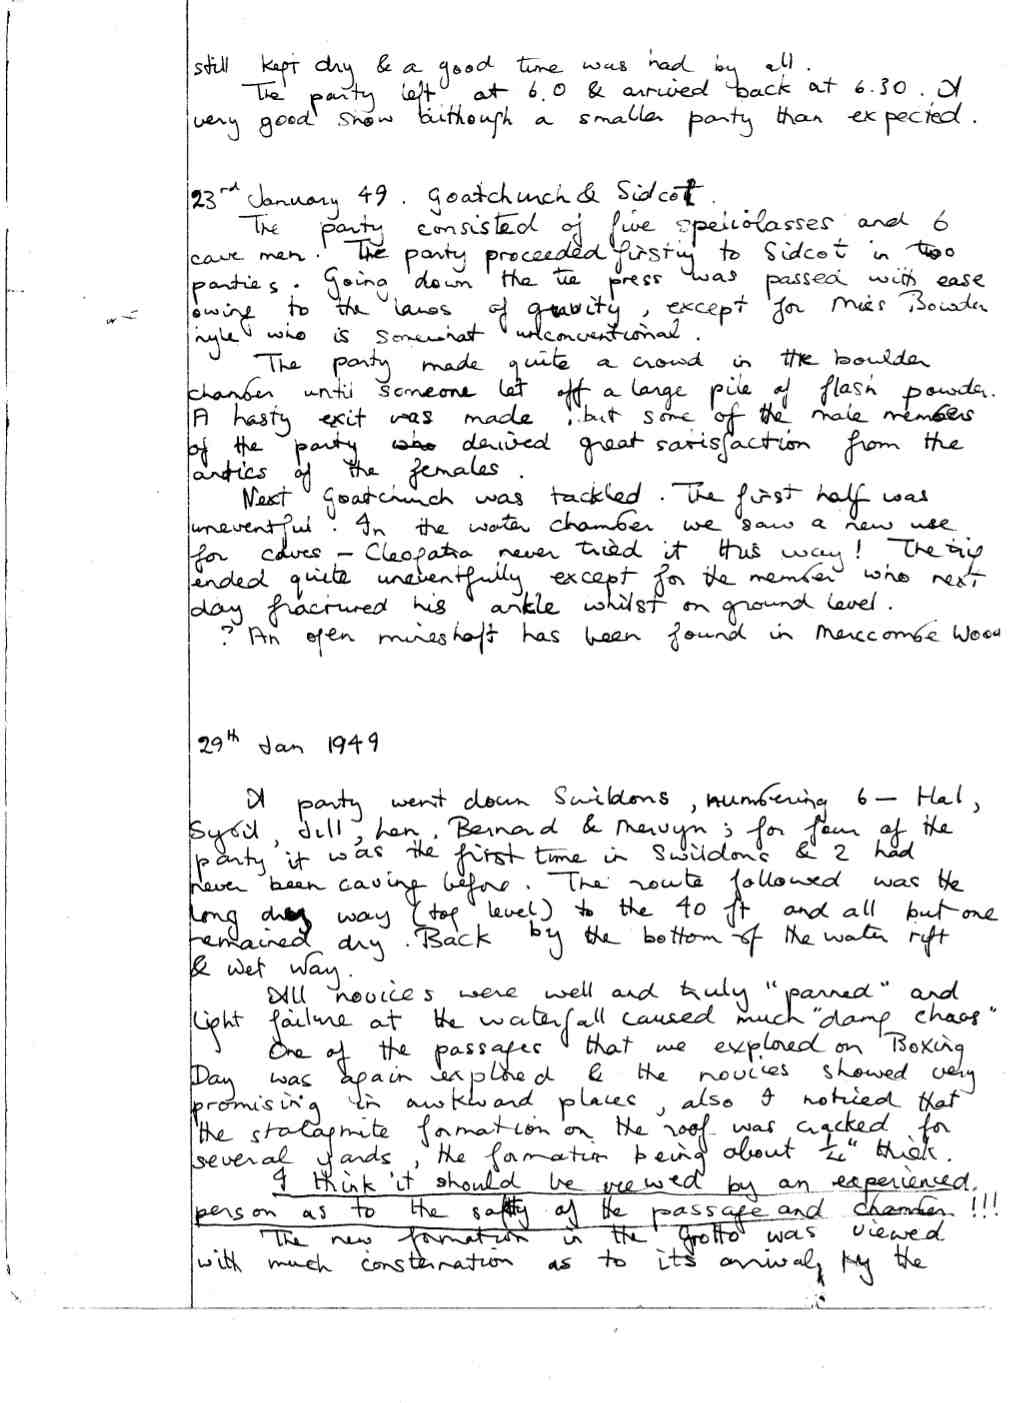 still kept dry & a good time was had by all.
The party left at 6.0 & arrived back at 6.30. A
very good show although a smaller party than expected.
23rd January 49. Goatchurch & Sidcot.
The party consisted of five speliolasses and 6
cave men. The party proceeded firstly to Sidcot in two
parties. Going down the tie press was passed with ease
owing to the laws of gravity, except for Miss Bowden
who is somewhat unconventional.
The party made quite a crowd in the boulder
chamber until someone let off a large pile of flash powder.
A hasty exit was made, but some of the male members
of the party who derived great satisfaction from the
antics of the females.
Next Goatchurch was tackled. The first half was
uneventful. In the water chamber we saw a new use
for caves – Cleopatra never tried it this way! The trip
ended quite uneventfully except for the member who next
day fractured his ankle whilst on ground level.
? An open mineshaft has been found in Wood
29th Jan 1949
A party went down Swildons, numbering 6 – Hal,
Sybil, Jill, Len, Bernard & Mervyn; for four of the
party it was the first time in Swildons & 2 had
never been caving before. The route followed was the
long dry way (top level) to the 40 ft and all but one
remained dry. Back by the bottom of the water rift
& wet way.
All novices were well and truly "panned" and
light failure at the waterfall caused much "damp chaos"
One of the passages that we explored on Boxing
Day was again explored & the novices showed very
promising in awkward places, also I noticed that
the stalagmite formation on the roof was cracked for
several yards, the formation being about thick.
I think it should be viewed by an experienced
person as to the safety of the passage and chamber!!!
The new formation in the Grotto was viewed
with much consternation as to its arrival, by the